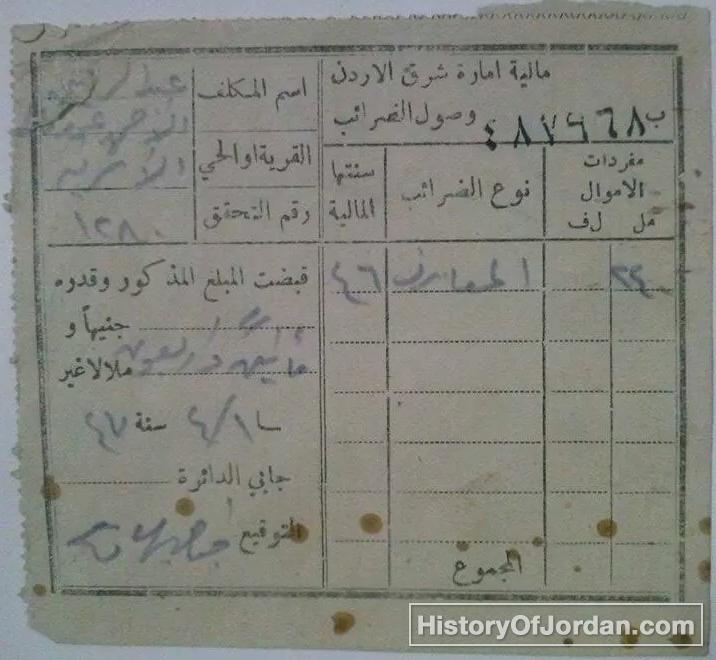 مالية امارة شرق الاردن
وصول الضرائب
ب ٤٨٧٦٦٨
مفردات الاموال
مل لف
نوع الضرائب
سنتها المالية
٢٤٠
المعارف
٤٦
المجموع
اسم المكلف
القرية او الحي
رقم التحقق
١٢٨٠
قبضت المبلغ المذكور وقدره
جنيهاً و
مائتين واربعون ملا لا غير
١/٤ سنة ٤٧
جابي الدائرة
التوقيع
HistoryOfJordan.com